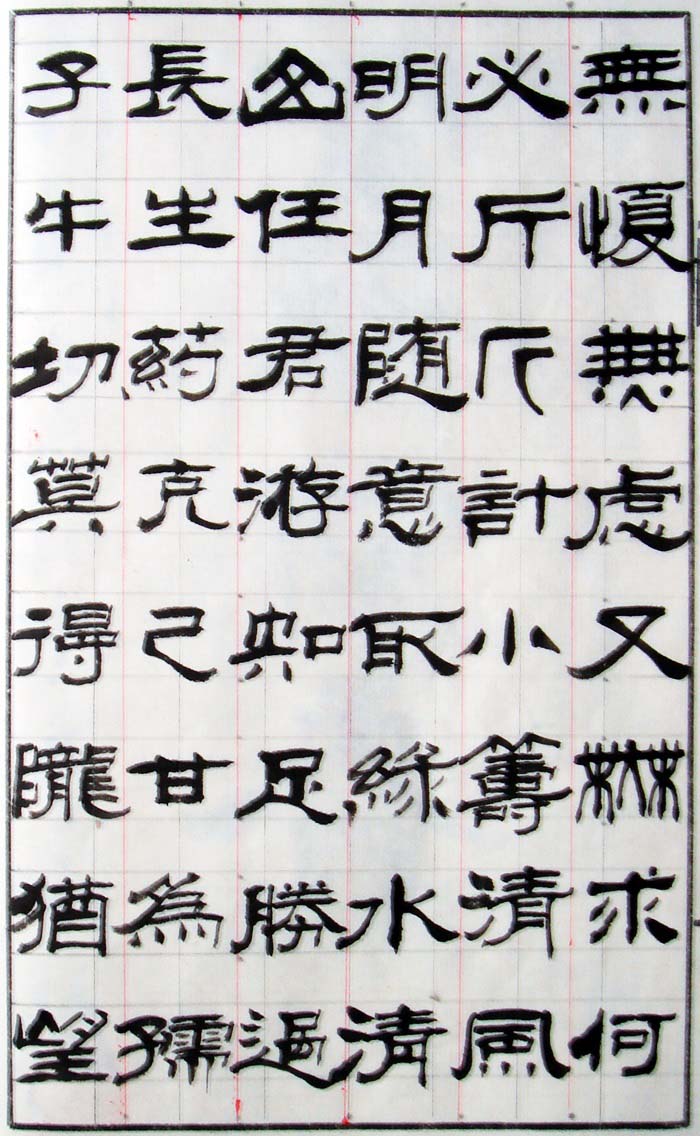 無憂無虑又無求何
必斤斤計小籌清風
明月随意取綠水清
山任君游知足勝過
長生药克己甘為孺
子牛切莫得隴猶望